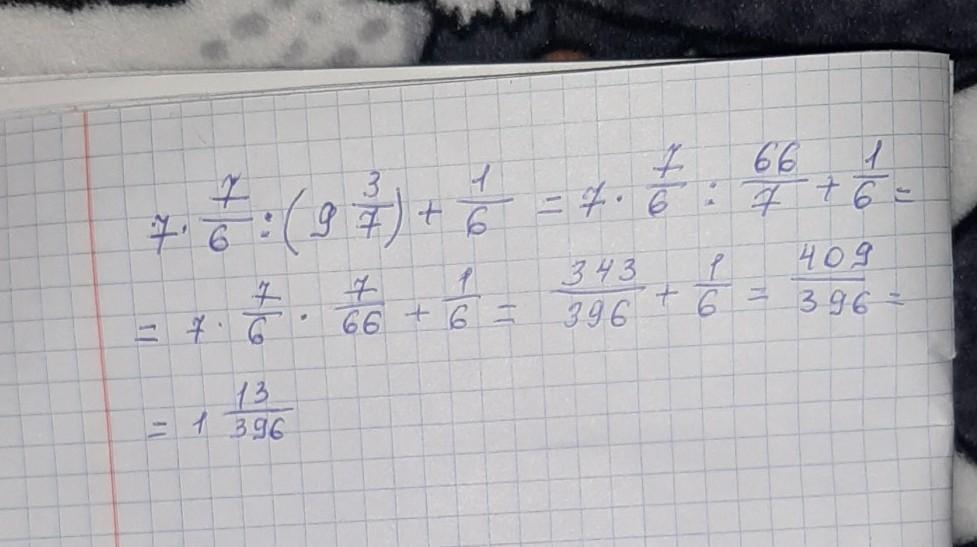 7 · 7/6 : (9 3/7) + 1/6 = 7 · 7/6 : 66/7 + 1/6 =
= 7 · 7/6 · 7/66 + 1/6 = 343/396 + 1/6 = 409/396 =
= 1 13/396